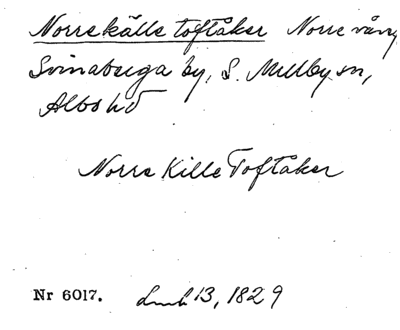 Norrekälle toftåker Norre vång
Svinaberga by, S. Mellby sn,
Albo hd
Norre Kille Toftåker
Nr 6017. 13, 1829